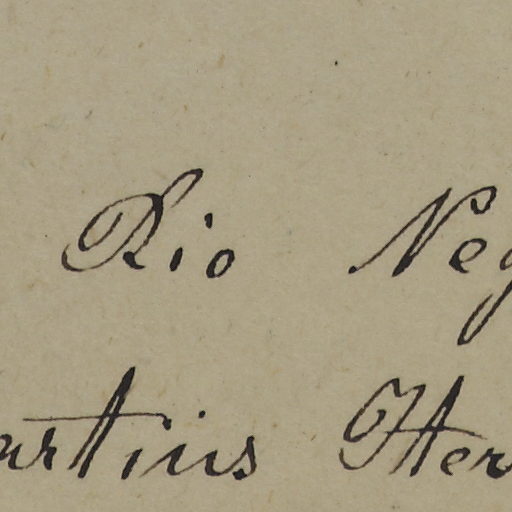 Rio Neg
artius Her